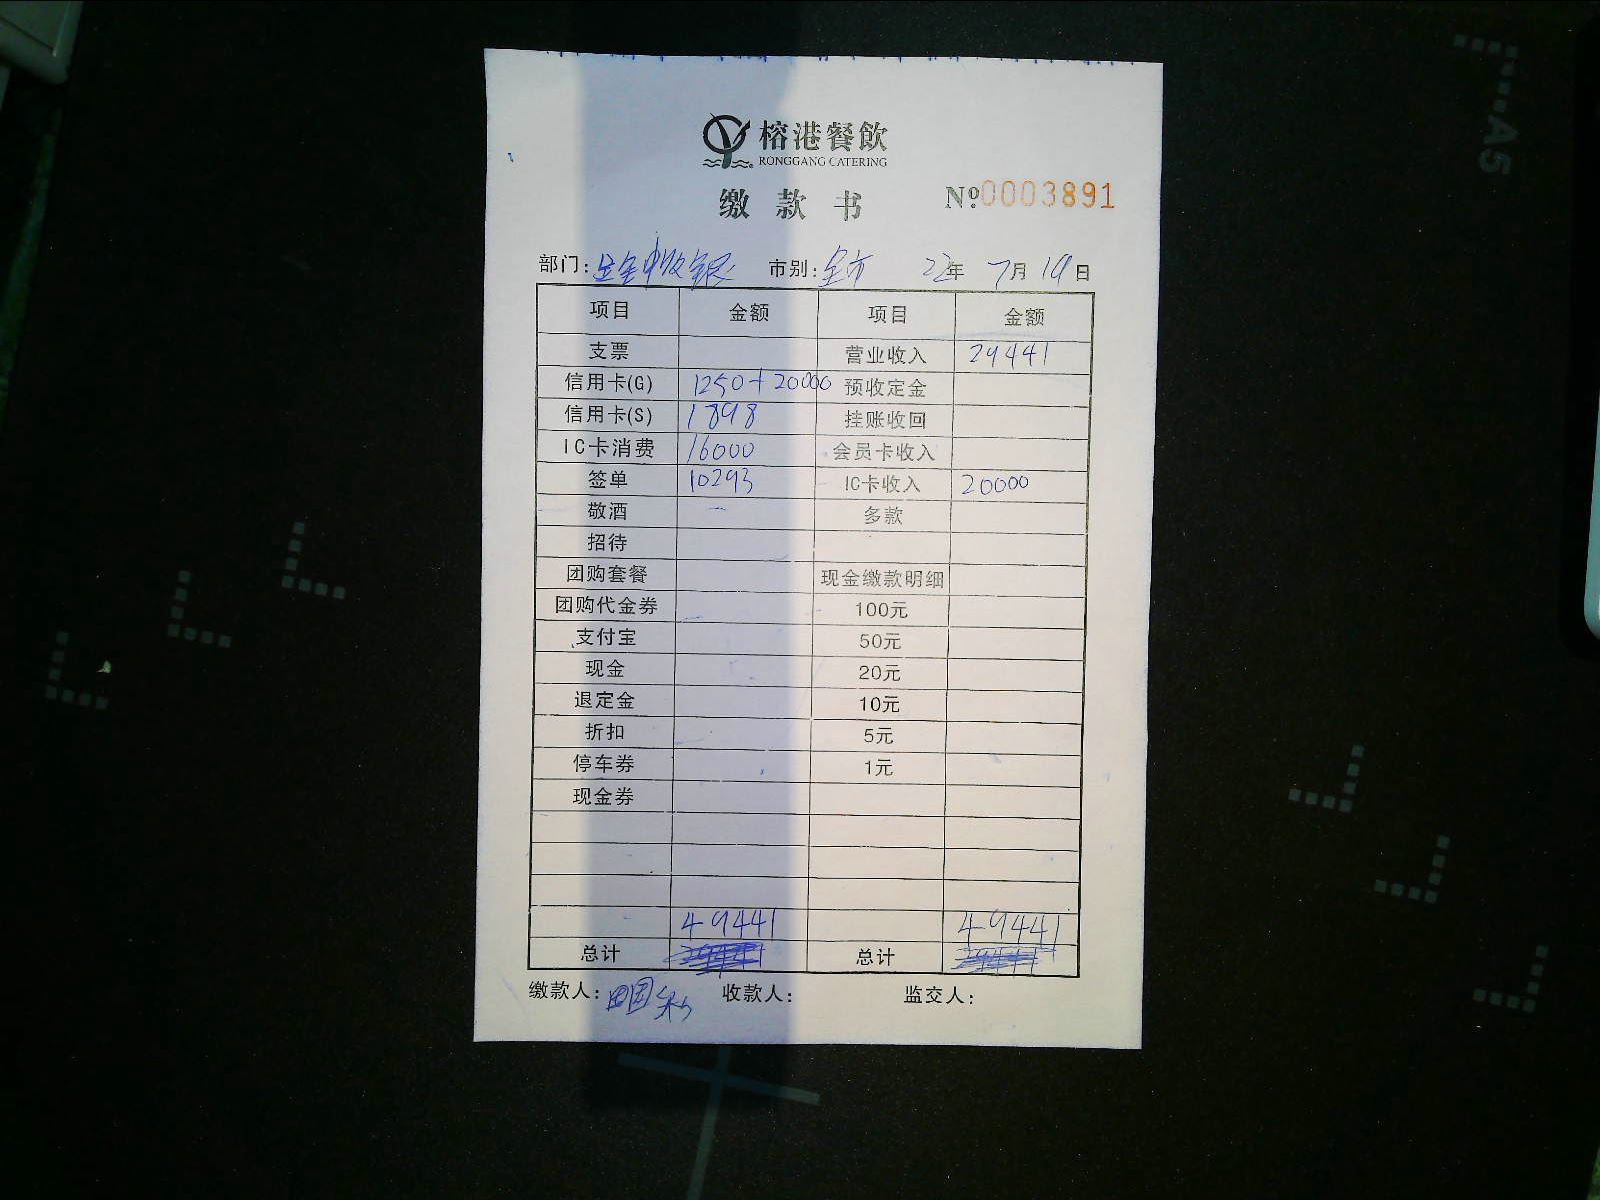 榕港餐飲
RONGGANG CATERING
缴款书 Nº 0003891
部门: 市别:全市 22年 7月 19日
项目 金额 项目 金额
支票 营业收入 29441
信用卡(G) 1250+20000 预收定金
信用卡(S) 1898 挂账收回
IC卡消费 16000 会员卡收入
签单 10293 IC卡收入 20000
敬酒 多款
招待
团购套餐 现金缴款明细
团购代金券 100元
支付宝 50元
现金 20元
退定金 10元
折扣 5元
停车券 1元
现金券
49441 49441
总计 总计
缴款人: 收款人: 监交人:
A5